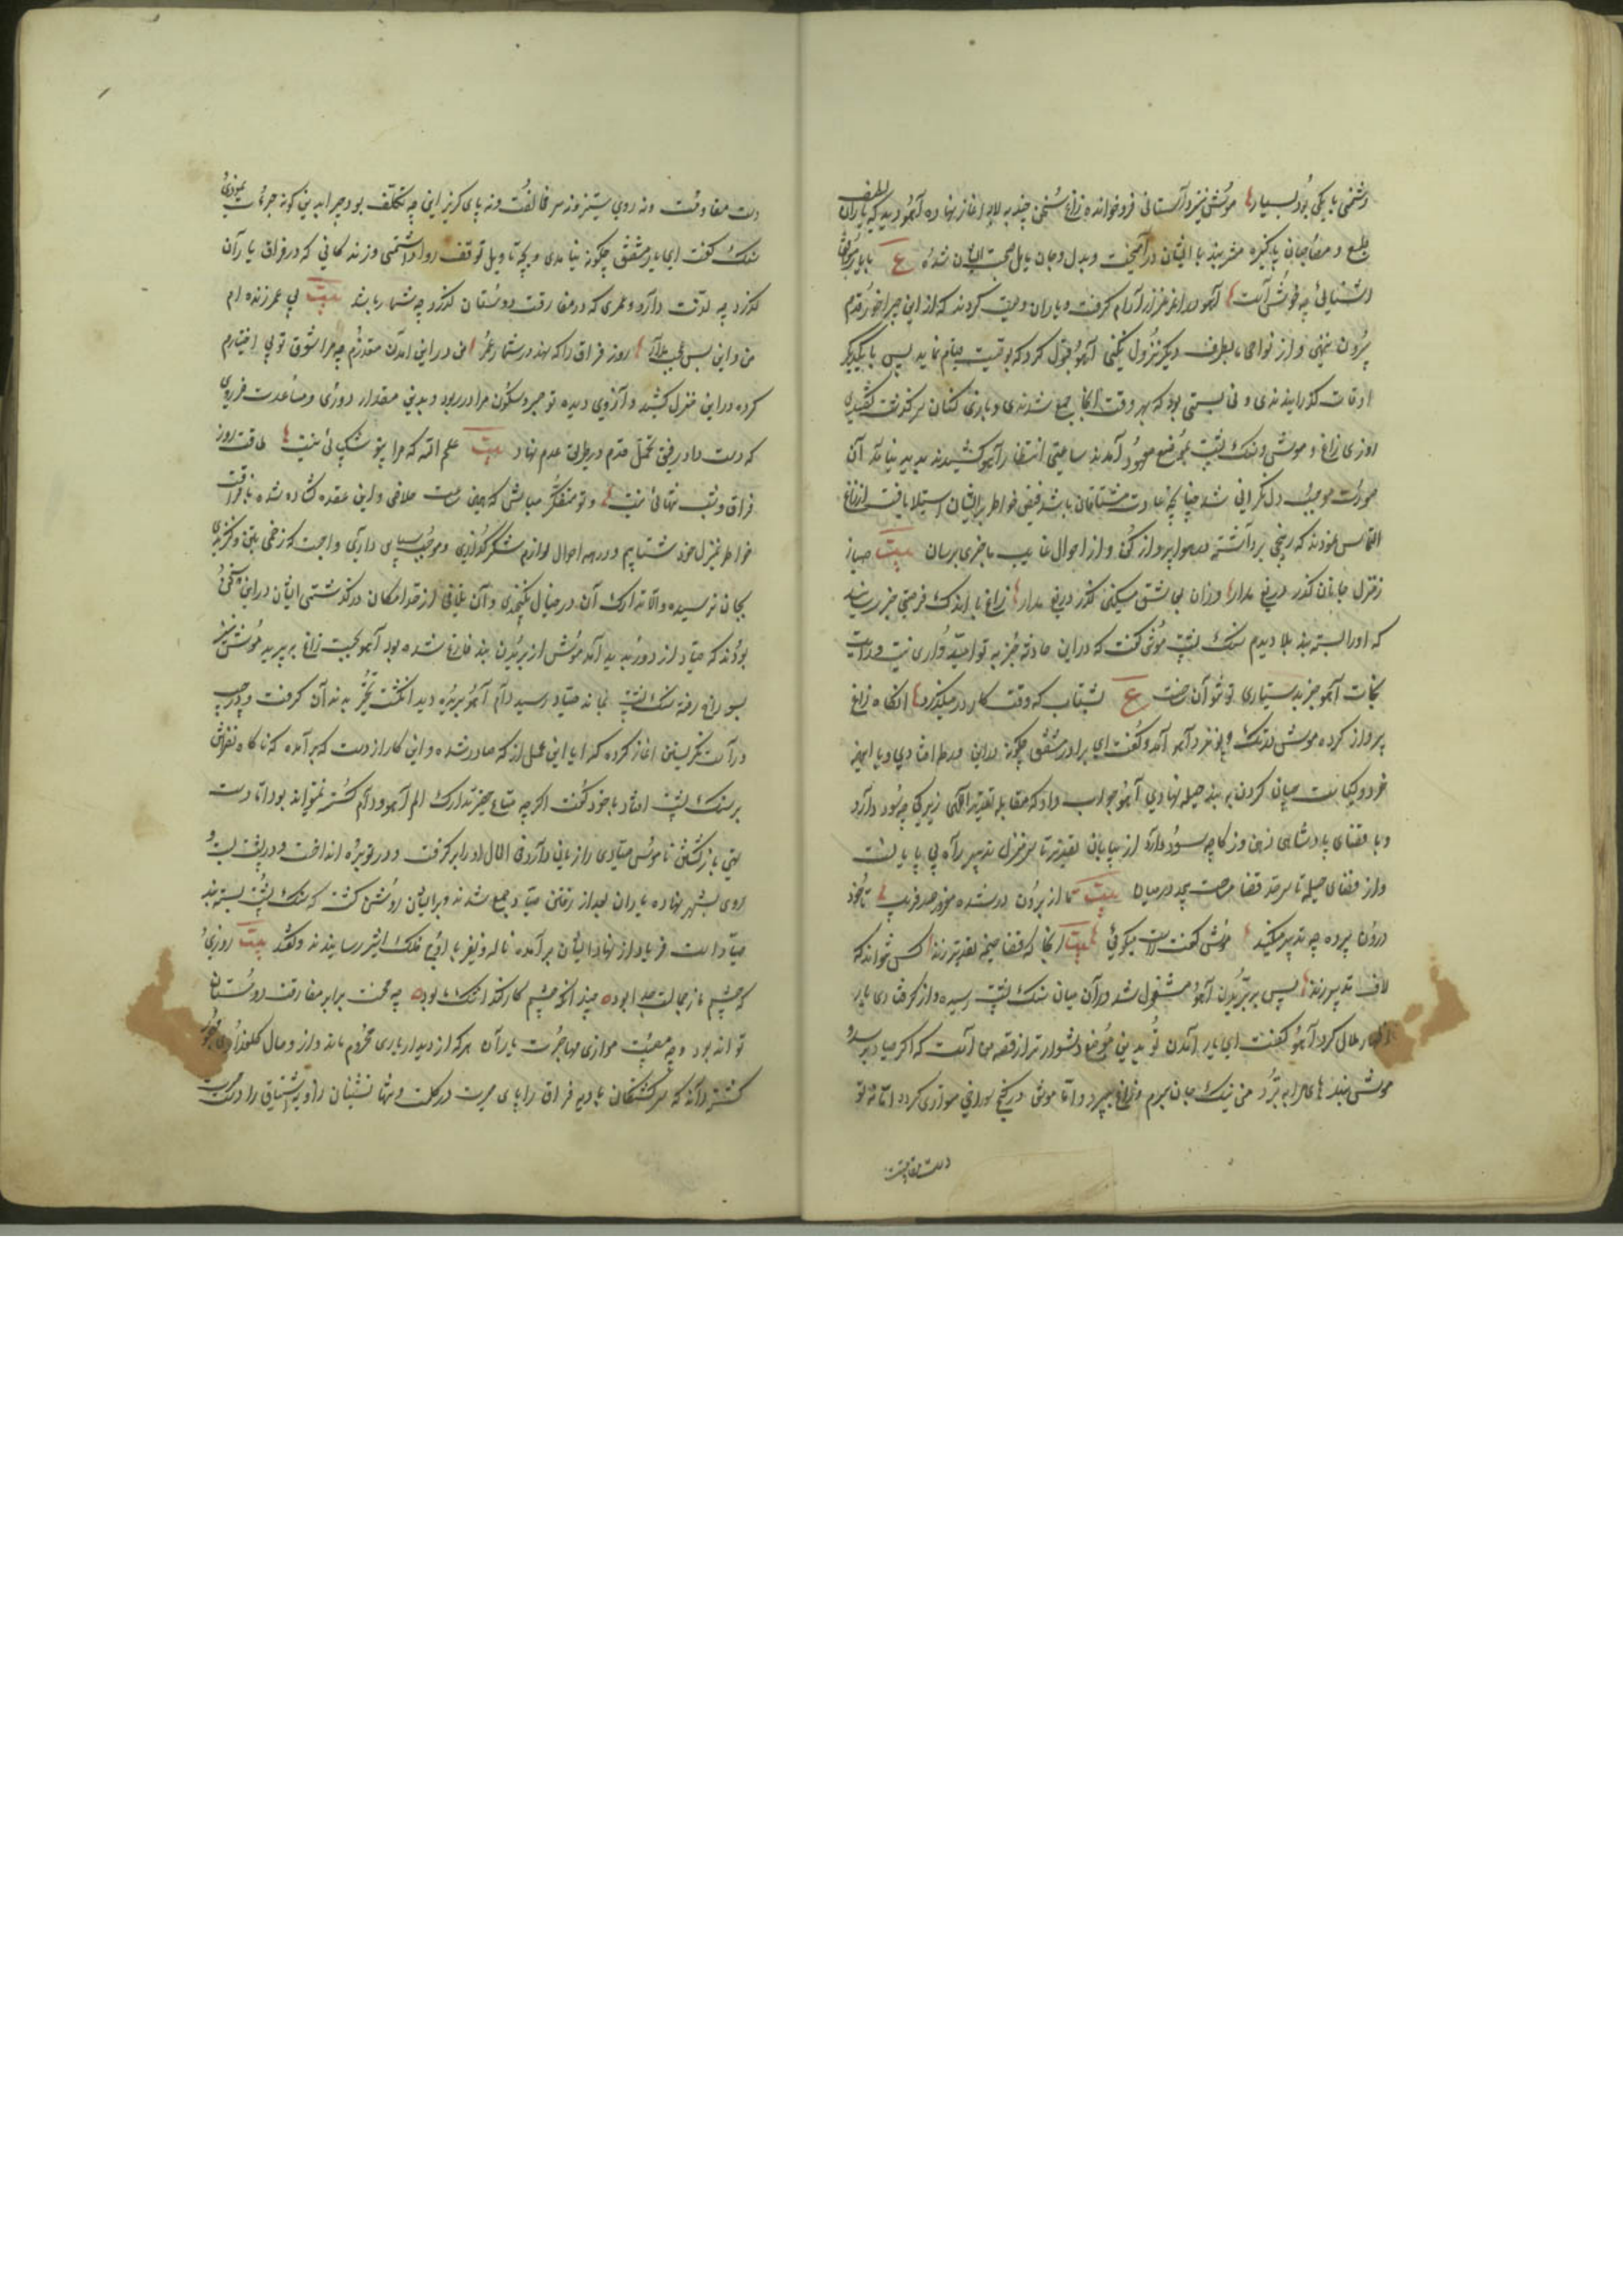 دشمنی با یکی بود بسیار موش نیز در آستانی فرو خوانده زاغ سخن چند به لابه آغاز نهاده آهو دید که یاران لطیف
طبع و مصاحبان پاکیزه مشربند با ایشان درآمیخت و بدل و جان مایل صحبت ایشان شده ع با یار موافق
آشنائی چه خوش است آهو در آن مرغزار آرام گرفت و یاران وصیت کردند که از این چراخور قدم
بیرون ننهی و از نواحی بطرف دیگر نزول نکنی آهو قبول کرد که بوقت مقام نماید پس با یکدیگر
اوقات گذرانیدندی و نی بستی بود که هر وقت آنجا جمع شدندی و بازی کنان سرگذشت گفتندی
روزی زاغ و موش و سنگ پشت بموضع معهود آمدند ساعتی انتظار آهو کشیدند پدید نیامد آن
صورت موجب دل نگرانی شد چنانچه عادت مشتاقان باشد قبض خواطر بر ایشان استیلا یافت از زاغ
التماس نمودند که رنجی برداشته در هوا پرواز کن و از احوال غایب ما خبری برسان بیت صبا ز
منزل جانان گذر دریغ مدار وزان بی عشق مسکین گذر دریغ مدار زاغ باندک فرصتی خبر رسانید
که او را بسته بند بلا دیدم سنگ پشت موش گفت که در این حادثه جز به تو امیدواری نیست و رایت
نجات آهو جز بدستیاری تو نتوان افراخت ع بشتاب که وقت کار در میگذرد آنگاه زاغ
پرواز کرده موش در تک و پو نزد آهو آمد و گفت ای برادر مشفق چگونه در این ورطه افتادی و با این
خرد و کیاست چسان گردن به بند حیله نهادی آهو جواب داد که مقابله تقدیر الهی زیرکی چه سود دارد
و با قضای پادشاهی ذهن و ذکا چه سود دارد از بیابان تقدیر تا سر منزل تدبیر راه بی پایانست
و از فضای حیله تا سرحد قضا مرحله بیحد در میان بیت تا از برون در شده مغرور صد فریب تا خود
درون پرده چه تدبیر میکند موش گفت راست میگوئی بیت آنجا که قضا خیمه تقدیر زند کس نتواند که
لاف تدبیر زند پس ببریدن آهو مشغول شد در آن میان سنگ پشت رسیده و از گرفتاری یار
اظهار ملال کرد آهو گفت ای یار آمدن تو بدین موضع دشوارتر از قصه من است که اگر صیاد برسد و
موش بندهای مرا ببرد من بتک جان ببرم و زاغ بپرد و اما موش در کنج سوراخی متواری گردد اما نه تو
دست مقاومت
دست مقاومت و نه روی ستیز و نه سر مخالفت و نه پای گریز این چه تکلف بود چرا بدین گونه جرأت نمودی
سنگ پشت گفت ای یار مشفق چگونه نیامدی و بچه تاویل توقف روا داشتمی و زندگانی که در فراق یاران
گذرد چه لذت دارد و عمری که در مفارقت دوستان گذرد چه شمار باشد بیت بی عمر زنده ام
من و این بس عجب مدار روز فراق را که نهد در شمار عمر من در این آمدن معذورم چه مرا شوق تو بی اختیارم
کرده در این منزل کشید و آرزوی دیده تو صبر و سکون مرا در ربود و بدین مقدار دوری و مساعدت ضروری
که دست داد رفیق تحمل قدم در طریق عدم نهاد بیت علم الله که مرا بتو شکیبائی نیست طاقت روز
فراق و شب تنهائی نیست و تو متفکر مباش که همین ساعت خلاصی و این عقده گشاده شده بفراغت
خواطر بمنزل خود شتابیم و در همه احوال لوازم شکرگذاری و موجب سپاس داری واجبست که زخمی بتن و گزندی
بجان نرسیده و الا تدارک آن در خیال نگنجیدی و آن تلافی از حد امکان درگذشتی ایشان در این سخن
بودند که صیاد از دور پدید آمد موش از بریدن بند فارغ شده بود آهو بجست زاغ بپرید موش نیز
بسوراخ رفته سنگ پشت بماند صیاد رسید دام آهو بریده دید انگشت تحیر بدندان گرفت و چپ و
راست نگریستن آغاز کرده که آیا این عمل از که صادر شده و این کار از دست که برآمده که ناگاه نظرش
بر سنگ پشت افتاد با خود گفت اگر چه متاع حقیر تدارک الم آهو و دام گسسته نمیتواند بود اما دست
تهی بازگشتن ناموس صیادی را زیانی دارد فی الحال او را برگرفت و در توبره انداخت و در پشت بسته
روی بشهر نهاده یاران بعد از رفتن صیاد جمع شدند و بر ایشان روشن گشت که سنگ پشت بسته بند
صیاد است فریاد از نهاد ایشان برآمده ناله و نفیر باوج فلک اثیر رسانیدند و گفتند بیت روزی
که چشم ما ز جمالت جدا بود چندانکه چشم کار کند اشک ما بود چه محنت برابر مفارقت دوستان
تواند بود و چه مصیبت موازی مهاجرت یاران هر که از دیدار یاری محروم ماند و از وصال گلعذاری مهجور
گشته داند که سرگشتگان بادیه فراق را پای حیرت در گلست و تنها نشینان زاویه اشتیاق را دست